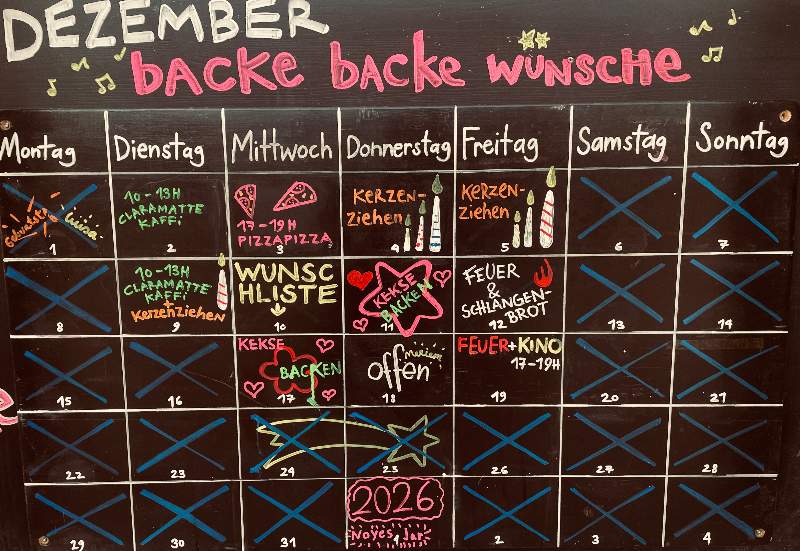 DEZEMBER
backe backe WÜNSCHE
Montag Dienstag Mittwoch Donnerstag Freitag Samstag Sonntag
Geburtstag
Luina
1
10-13H
CLARAMATTE
KAFFI
2
17-19H
PIZZAPIZZA
3
KERZEN-
Ziehen
4
KERZEN-
Ziehen
5
6
7
8
10-13H
CLARAMATTE
KAFFI
+
Kerzenziehen
9
WUNSC
HLISTE
10
KEKSE
BACKEN
11
FEUER
&
SCHLANGEN-
BROT
12
13
14
15
16
KEKSE
BACKEN
17
offen
18
FEUER+KINO
17-19H
19
20
21
22
23
24
25
26
27
28
29
30
31
2026
Noyes Jar
1
2
3
4